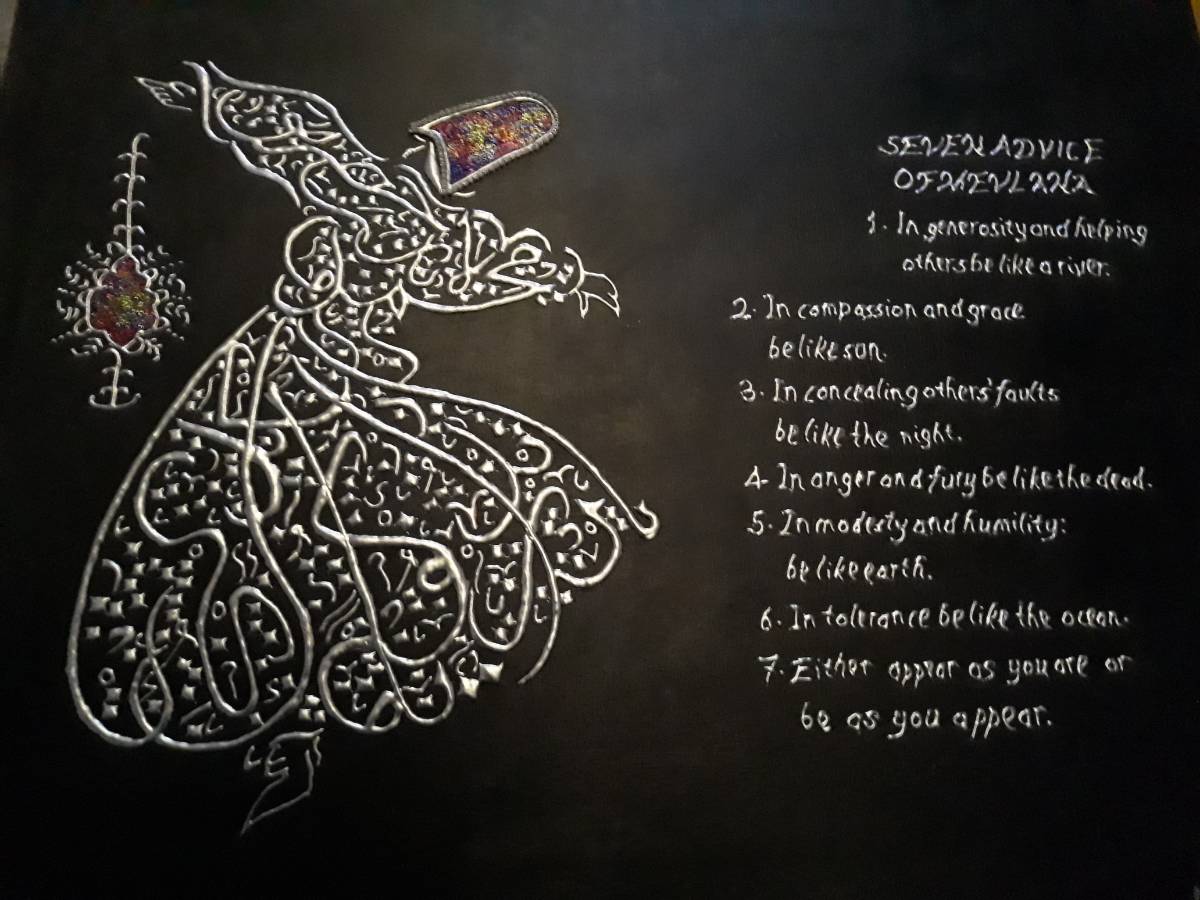 SEVEN ADVICE
OF MEVLANA
1. In generosity and helping
others be like a river.
2. In compassion and grace
be like sun.
3. In concealing others' faults
be like the night.
4. In anger and fury be like the dead.
5. In modesty and humility:
be like earth.
6. In tolerance be like the ocean.
7. Either appear as you are or
be as you appear.